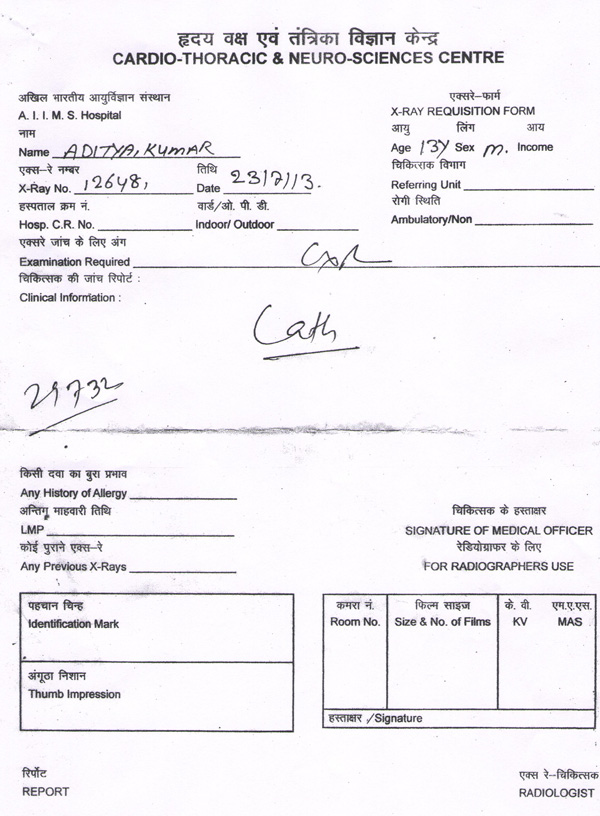 हृदय वक्ष एवं तंत्रिका विज्ञान केन्द्र
CARDIO-THORACIC & NEURO-SCIENCES CENTRE
अखिल भारतीय आयुर्विज्ञान संस्थान
A. I. I. M. S. Hospital
एक्सरे-फार्म
X-RAY REQUISITION FORM
नाम
Name ADITYA, KUMAR
आयु लिंग आय
Age 13Y Sex M. Income
एक्स-रे नम्बर तिथि
X-Ray No. 12648, Date 23/7/13.
चिकित्सक विभाग
Referring Unit
हस्पताल क्रम नं. वार्ड/ओ. पी. डी.
Hosp. C.R. No. Indoor/ Outdoor
रोगी स्थिति
Ambulatory/Non
एक्सरे जांच के लिए अंग
Examination Required CXR
चिकित्सक की जांच रिपोर्ट :
Clinical Information :
Cath
29732
किसी दवा का बुरा प्रभाव
Any History of Allergy
अन्तिम माहवारी तिथि
LMP
कोई पुराने एक्स-रे
Any Previous X-Rays
चिकित्सक के हस्ताक्षर
SIGNATURE OF MEDICAL OFFICER
रेडियोग्राफर के लिए
FOR RADIOGRAPHERS USE
पहचान चिन्ह
Identification Mark
अंगूठा निशान
Thumb Impression
कमरा नं. फिल्म साइज के. वी. एम.ए.एस.
Room No. Size & No. of Films KV MAS
हस्ताक्षर /Signature
रिर्पोट
REPORT
एक्स रे-चिकित्सक
RADIOLOGIST